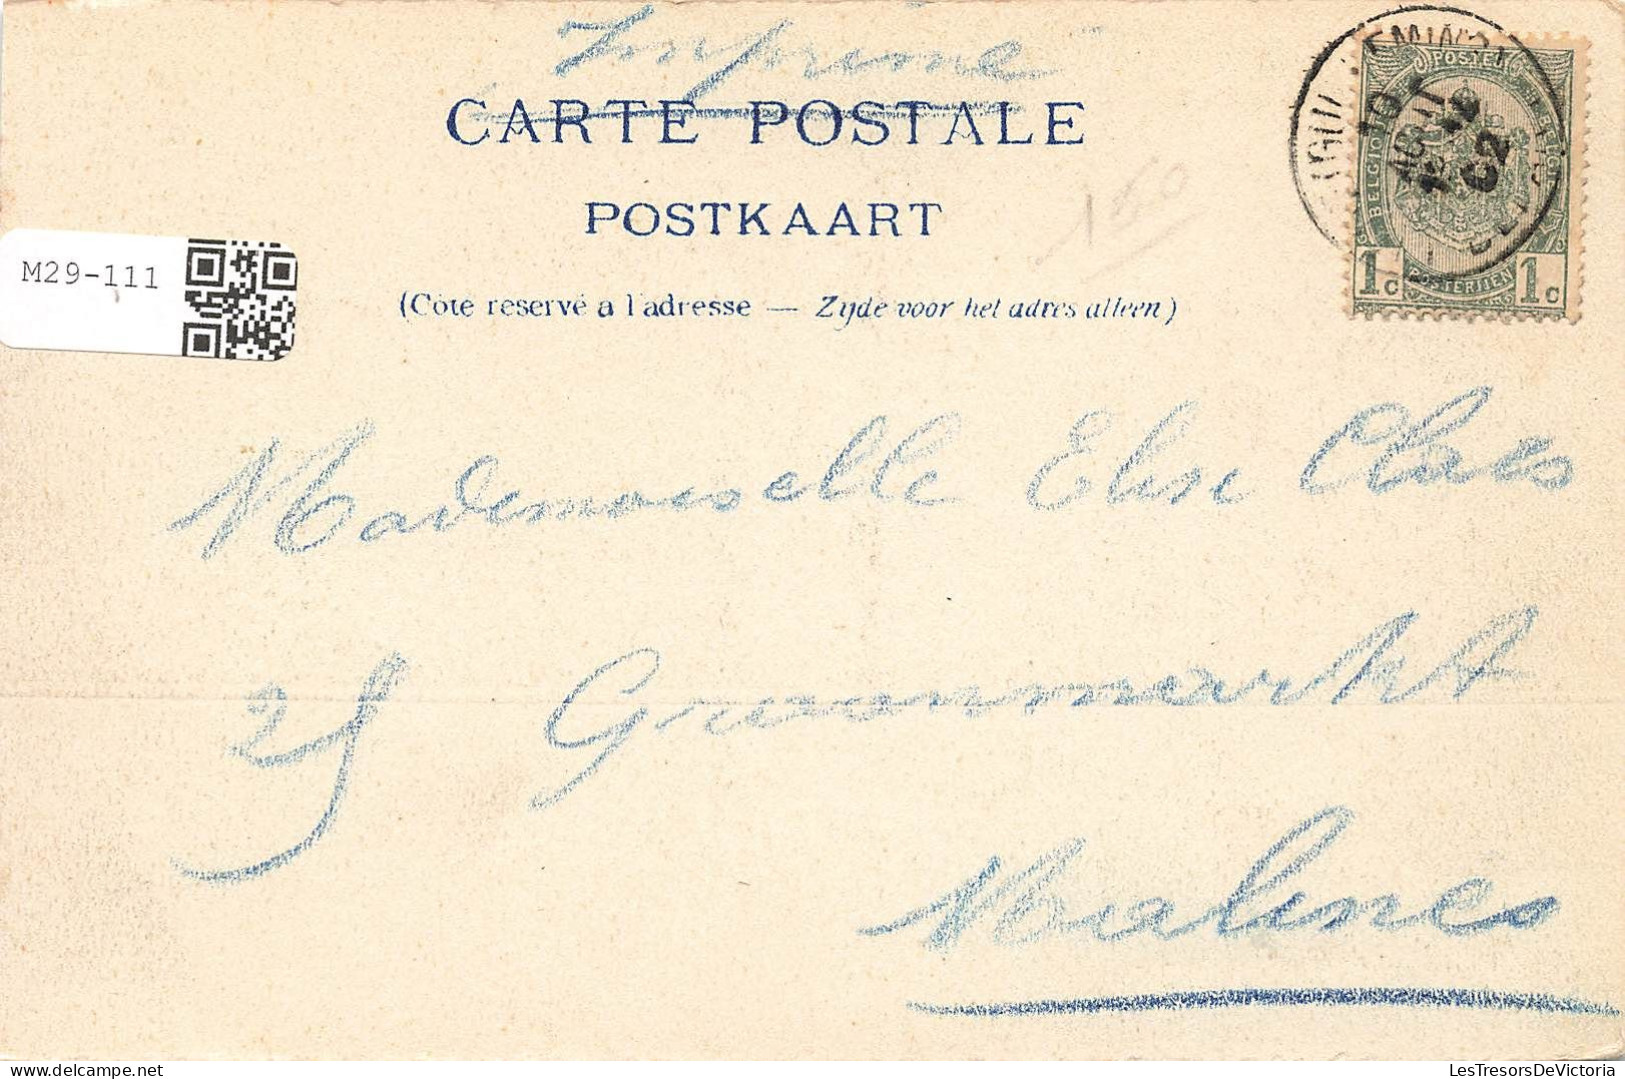 Imprimé
CARTE POSTALE
POSTKAART
(Côté reservé a l'adresse — Zijde voor het adres alleen)
M29-111
POSTES
BELGIQUE
BELGIË
1c POSTERIJEN 1c
10
AOUT
02
Mademoiselle Elise Claes
25 Gruunmarkt
Malines
LesTresorsDeVictoria